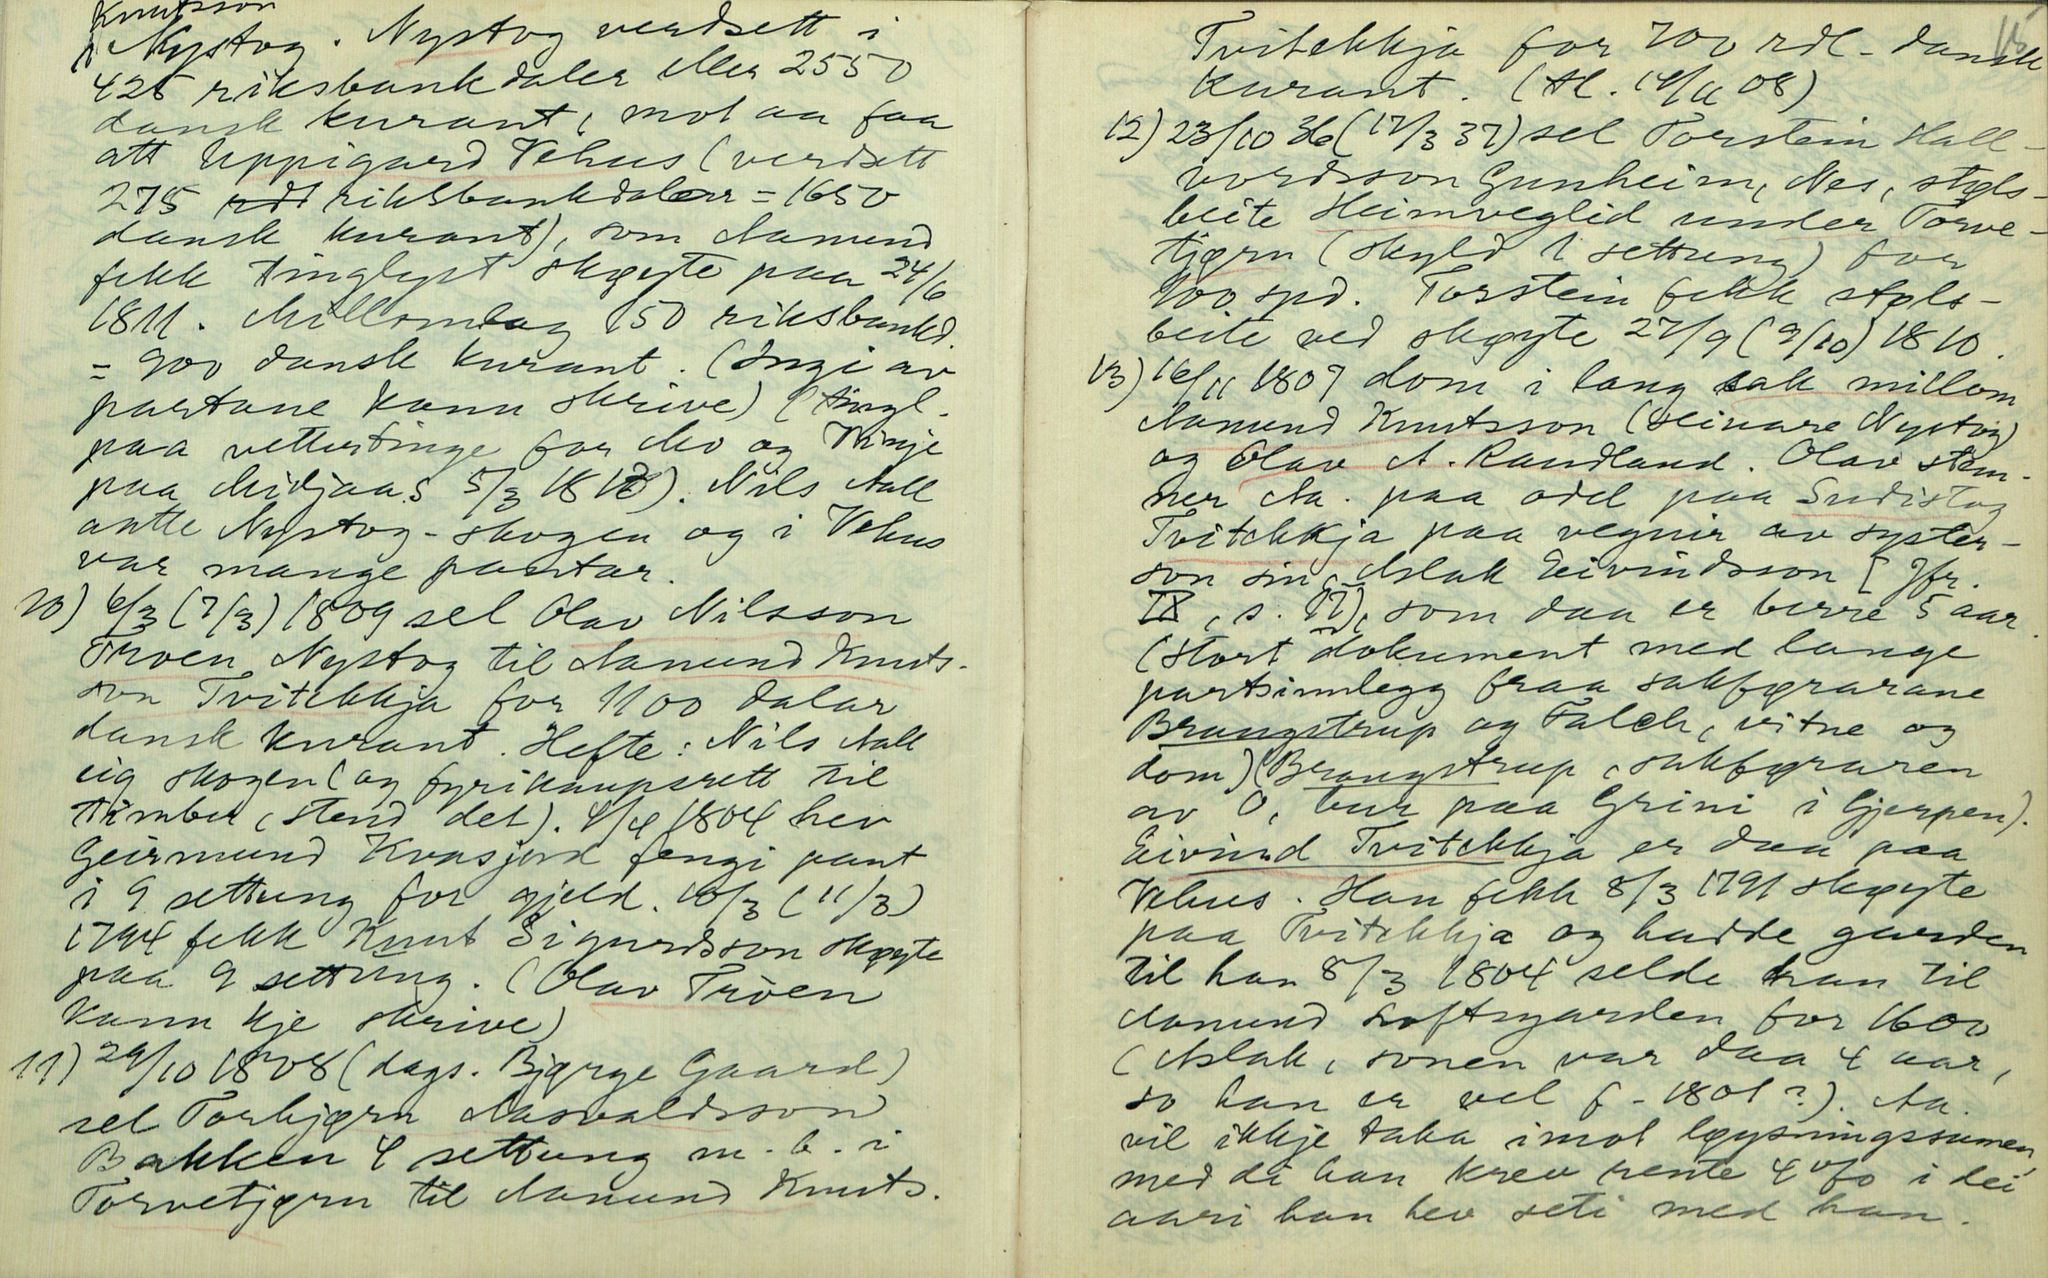 Knutsson
i Nystog. Nystog verdsett i
425 riksbankdaler eller 2550
dansk kurant, mot aa faa
att Uppigard Vehus (verdsett
275 rdl riksbankdaler = 1650
dansk kurant), som Aamund
fekk tinglyst skøyte paa 24/6
1811. Millomlag 150 riksbankd.
= 900 dansk kurant. (Ingi av
partane kann skrive) (tingl.
paa vettertinge for Mo og Vinje
paa Midjaas 5/3 18). Nils Aall
aatte Nystog-skogen og i Vehus
var mange pantar.
10) 6/3 (7/3) 1809 sel Olav Nilsson
Troen Nystog til Aamund Knuts-
son Tvitekkja for 1100 dalar
dansk kurant. Hefte: Nils Aall
eig skogen (og fyrikaupsrett til
timber, stend det). 4/4 1804 hev
Geirmund Kvasjord fengi pant
i 9 settung for gjeld. 10/3 (11/3)
1794 fekk Knut Sigurdsson skøyte
paa 9 settung. (Olav Tròen
kann kje skrive)
11) 29/10 1808 (dags. Bjørge Gaard)
sel Torbjørn Aasvaldsson
Bakken 4 settung m. b. i
Torvetjørn til Aamund Knuts.
15
Tvitekkja for 700 rdl. dansk
kurant. (tl. 14/11 08)
12) 23/10 36 (17/3 37) sel Torstein Hall-
vordsson Gunheim, Nes, støls-
beite Heimveglid under Torve-
tjørn (skyld 1 settung) for
400 spd. Torstein fekk støls-
beite ved skøyte 27/9 (9/10) 1810.
13) 16/11 1807 dom i lang sak millom
Aamund Knutsson (seinare Nystog)
og Olav A. Raudland. Olav stem-
ner Aa. paa odel paa Sudistog
Tvitekkja paa vegnir av syster-
son sin, Aslak Eivindsson [Jfr.
IX, s. 17], som daa er berre 5 aar.
(Stort dokument med lange
partsinnlegg fraa sakførarane
Brangstrup og Falch, vitne og
dom) (Brangstrup, sakføraren
av O, bur paa Grini i Gjerpen).
Eivind Tvitekkja er daa paa
Vehus. Han fekk 8/3 1791 skøyte
paa Tvitekkja og hadde garden
til han 8/3 1804 selde han til
Aamund Loftsgarden for 1600
(Aslak, sonen var daa 4 aar,
so han er vel f. 1801?). Aa.
vil ikkje taka imot løysningssumen,
med di han krev rente 4 % i dei
aari han hev seti med han.